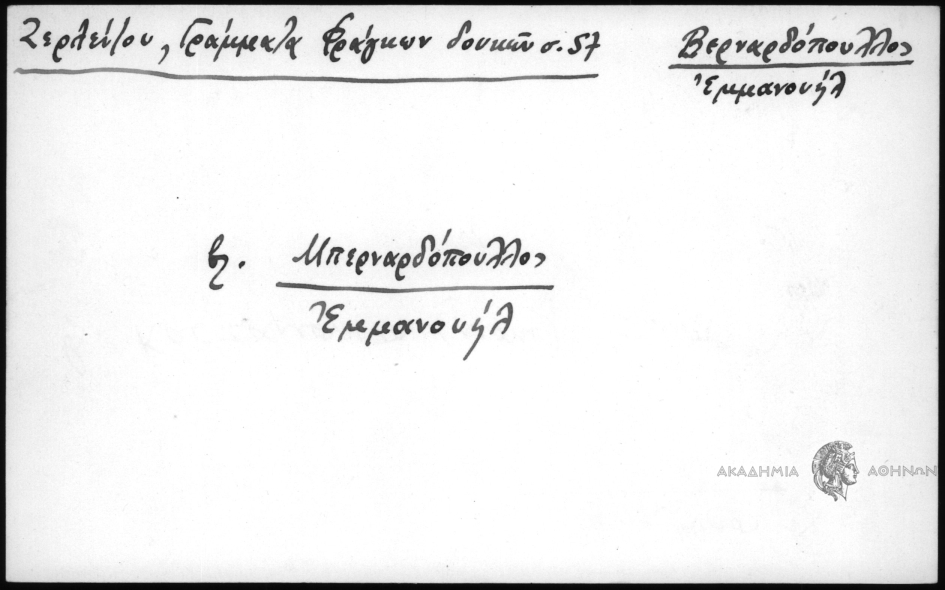 Ζερλέντου, Γράμματα Φράγκων δουκῶν σ. 57
Βερναρδόπουλλος
Ἐμμανουήλ
βλ. Μπερναρδόπουλλος
Ἐμμανουήλ
ΑΚΑΔΗΜΙΑ ΑΘΗΝΩΝ